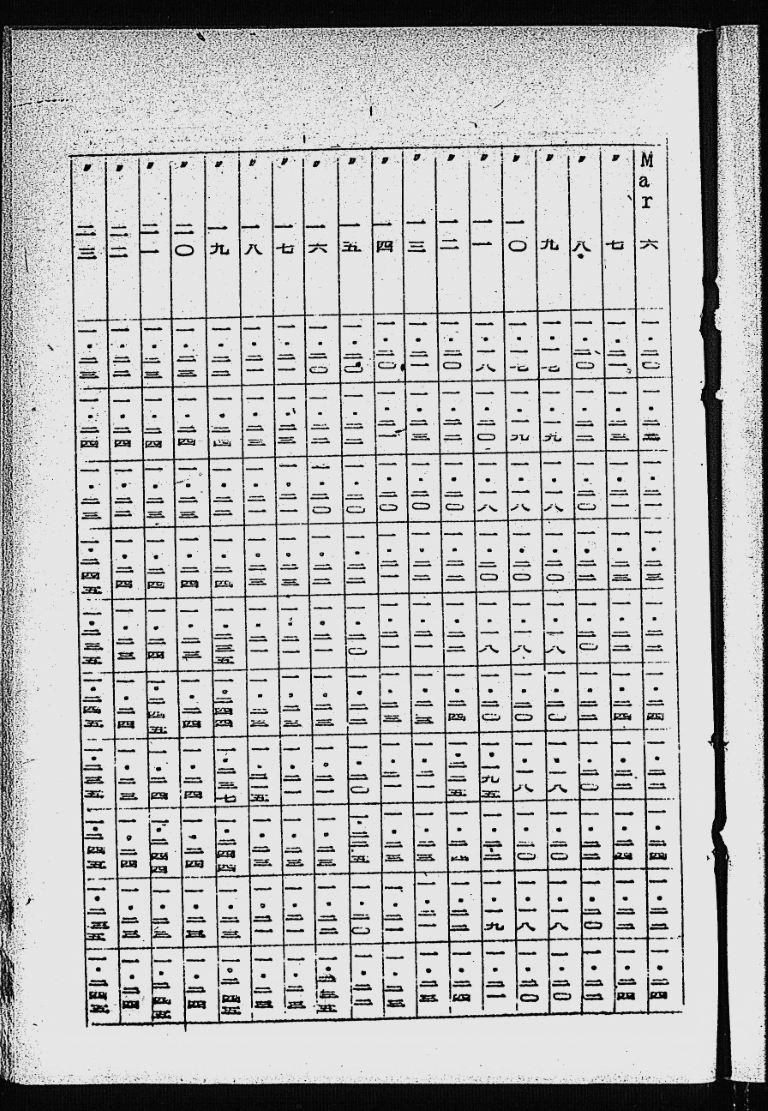 Mar 六 一・二〇 一・二三 一・二一 一・二三 一・二二 一・二四 一・二二 一・二四 一・二二 一・二四
〃 七 一・二一 一・二三 一・二一 一・二三 一・二二 一・二四 一・二二 一・二四 一・二二 一・二四
〃 八 一・二〇 一・二二 一・二〇 一・二二 一・二〇 一・二二 一・二〇 一・二二 一・二〇 一・二二
〃 九 一・一七 一・一九 一・一八 一・二〇 一・一八 一・二〇 一・一八 一・二〇 一・一八 一・二〇
〃 一〇 一・一七 一・一九 一・一八 一・二〇 一・一八 一・二〇 一・一八 一・二〇 一・一八 一・二〇
〃 一一 一・一八 一・二〇 一・一八 一・二〇 一・一八 一・二〇 一・一九五 一・一九 一・二一
〃 一二 一・二〇 一・二二 一・二〇 一・二二 一・二二 一・二四 一・二二五 一・二二 一・二四
〃 一三 一・二一 一・二三 一・二〇 一・二二 一・二一 一・二三 一・二一 一・二三 一・二一 一・二三
〃 一四 一・二〇 一・二二 一・二〇 一・二二 一・二一 一・二三 一・二一 一・二三 一・二一 一・二三
〃 一五 一・二〇 一・二二 一・二〇 一・二二 一・二〇 一・二二 一・二〇 一・二二五 一・二〇 一・二二
〃 一六 一・二〇 一・二二 一・二〇 一・二二 一・二一 一・二三 一・二一 一・二三 一・二二 一・二三五
〃 一七 一・二一 一・二三 一・二一 一・二三 一・二一 一・二三 一・二一 一・二三 一・二一 一・二三
〃 一八 一・二一 一・二三 一・二一 一・二三 一・二一 一・二三 一・二一五 一・二三 一・二一 一・二三
〃 一九 一・二二 一・二四 一・二二 一・二四 一・二二五 一・二四四 一・二二七 一・二四四 一・二三 一・二四五
〃 二〇 一・二三 一・二四 一・二三 一・二四 一・二三 一・二四 一・二四 一・二四 一・二三 一・二四
〃 二一 一・二三 一・二四 一・二三 一・二四 一・二四 一・二四五 一・二四 一・二四四 一・二三 一・二四五
〃 二二 一・二三 一・二四 一・二三 一・二四 一・二三 一・二四 一・二三 一・二四 一・二三 一・二四
〃 二三 一・二三 一・二四 一・二三 一・二四五 一・二三五 一・二四五 一・二三五 一・二四五 一・二三五 一・二四五